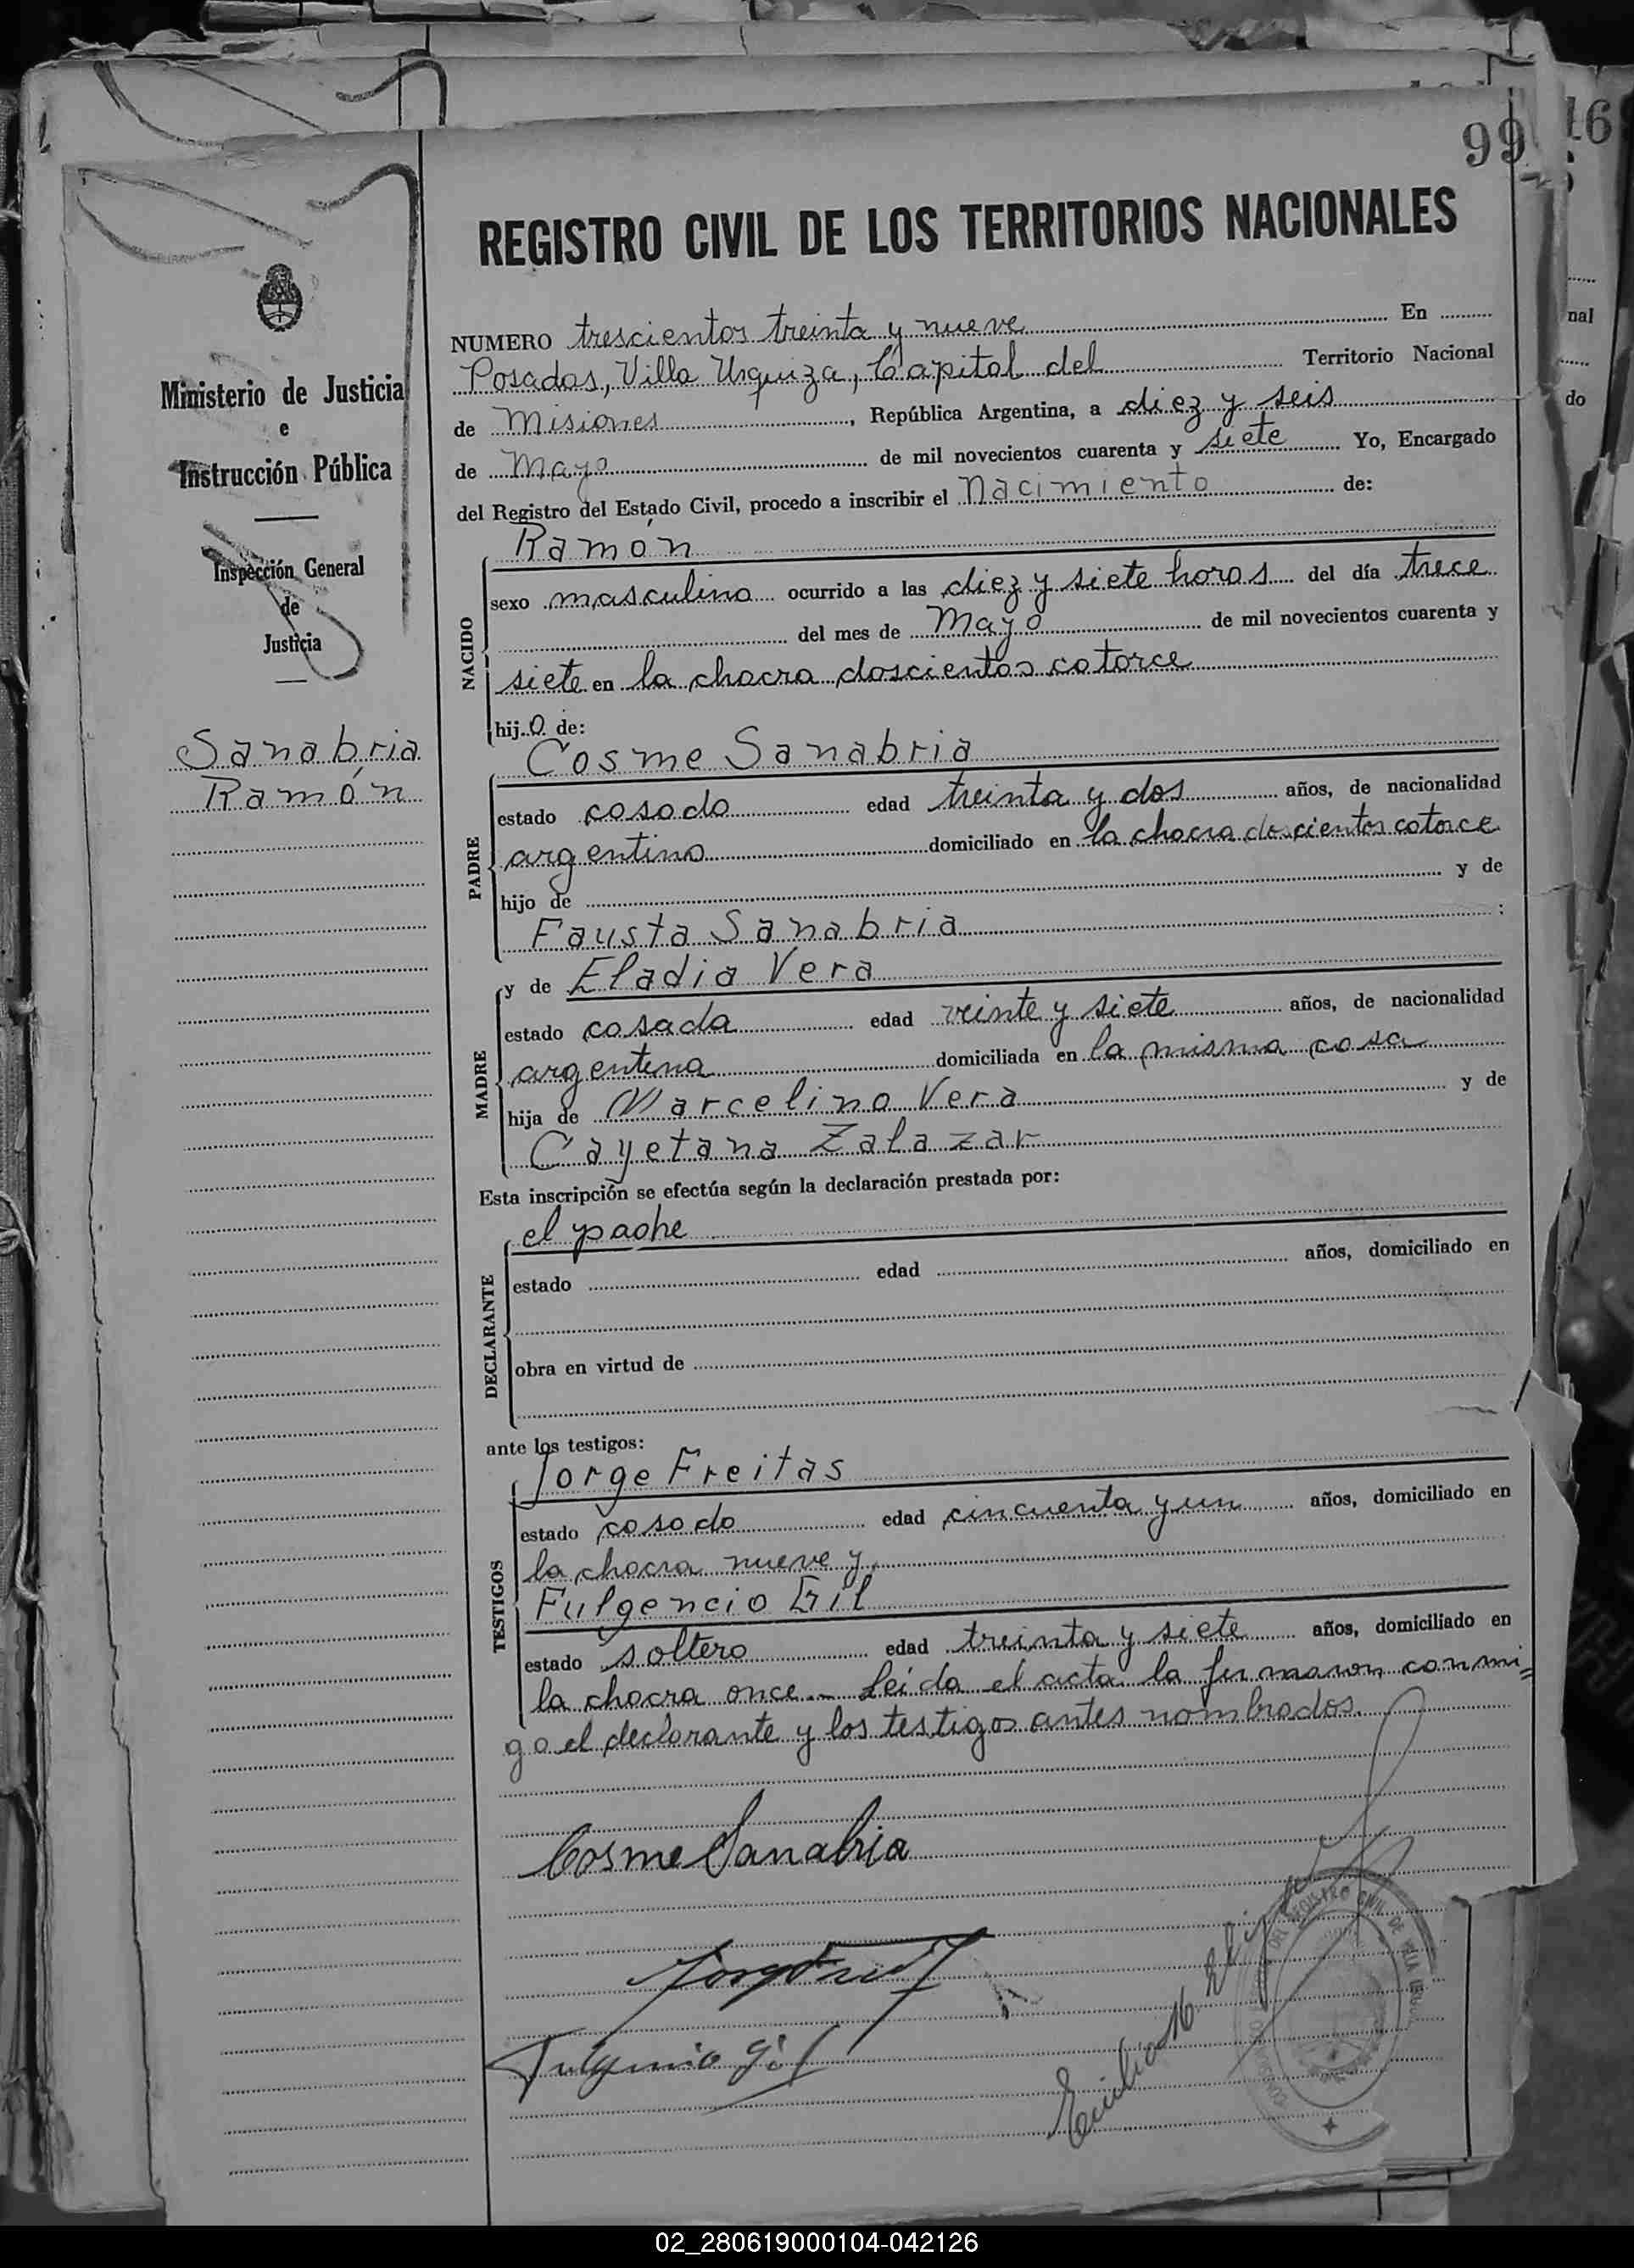 99
16
REGISTRO CIVIL DE LOS TERRITORIOS NACIONALES
Ministerio de Justicia
e
Instrucción Pública
Inspección General
de
Justicia
Sanabria
Ramón
NUMERO trescientos treinta y nueve En
Posadas, Villa Urquiza, Capital del Territorio Nacional
de Misiones, República Argentina, a diez y seis
de Mayo de mil novecientos cuarenta y siete Yo, Encargado
del Registro del Estado Civil, procedo a inscribir el Nacimiento de:
NACIDO
Ramón
sexo masculino ocurrido a las diez y siete horas del día trece
del mes de Mayo de mil novecientos cuarenta y
siete en la chacra doscientos catorce
hijo de:
PADRE
Cosme Sanabria
estado casado edad treinta y dos años, de nacionalidad
argentino domiciliado en la chacra doscientos catorce
hijo de y de
Fausta Sanabria;
MADRE
y de Eladia Vera
estado casada edad veinte y siete años, de nacionalidad
argentina domiciliada en la misma casa
hija de Marcelino Vera y de
Cayetana Zalazar
Esta inscripción se efectúa según la declaración prestada por:
DECLARANTE
el padre
estado edad años, domiciliado en
obra en virtud de
ante los testigos:
TESTIGOS
Jorge Freitas
estado casado edad cincuenta y un años, domiciliado en
la chacra nueve y
Fulgencio Gil
estado soltero edad treinta y siete años, domiciliado en
la chacra once.- Leída el acta la firmaron conmi=
go el declarante y los testigos antes nombrados.
Cosme Sanabria
Fulgencio Gil
DEL REGISTRO CIVIL DE VILLA URQUIZA
nal
do
02_280619000104-042126